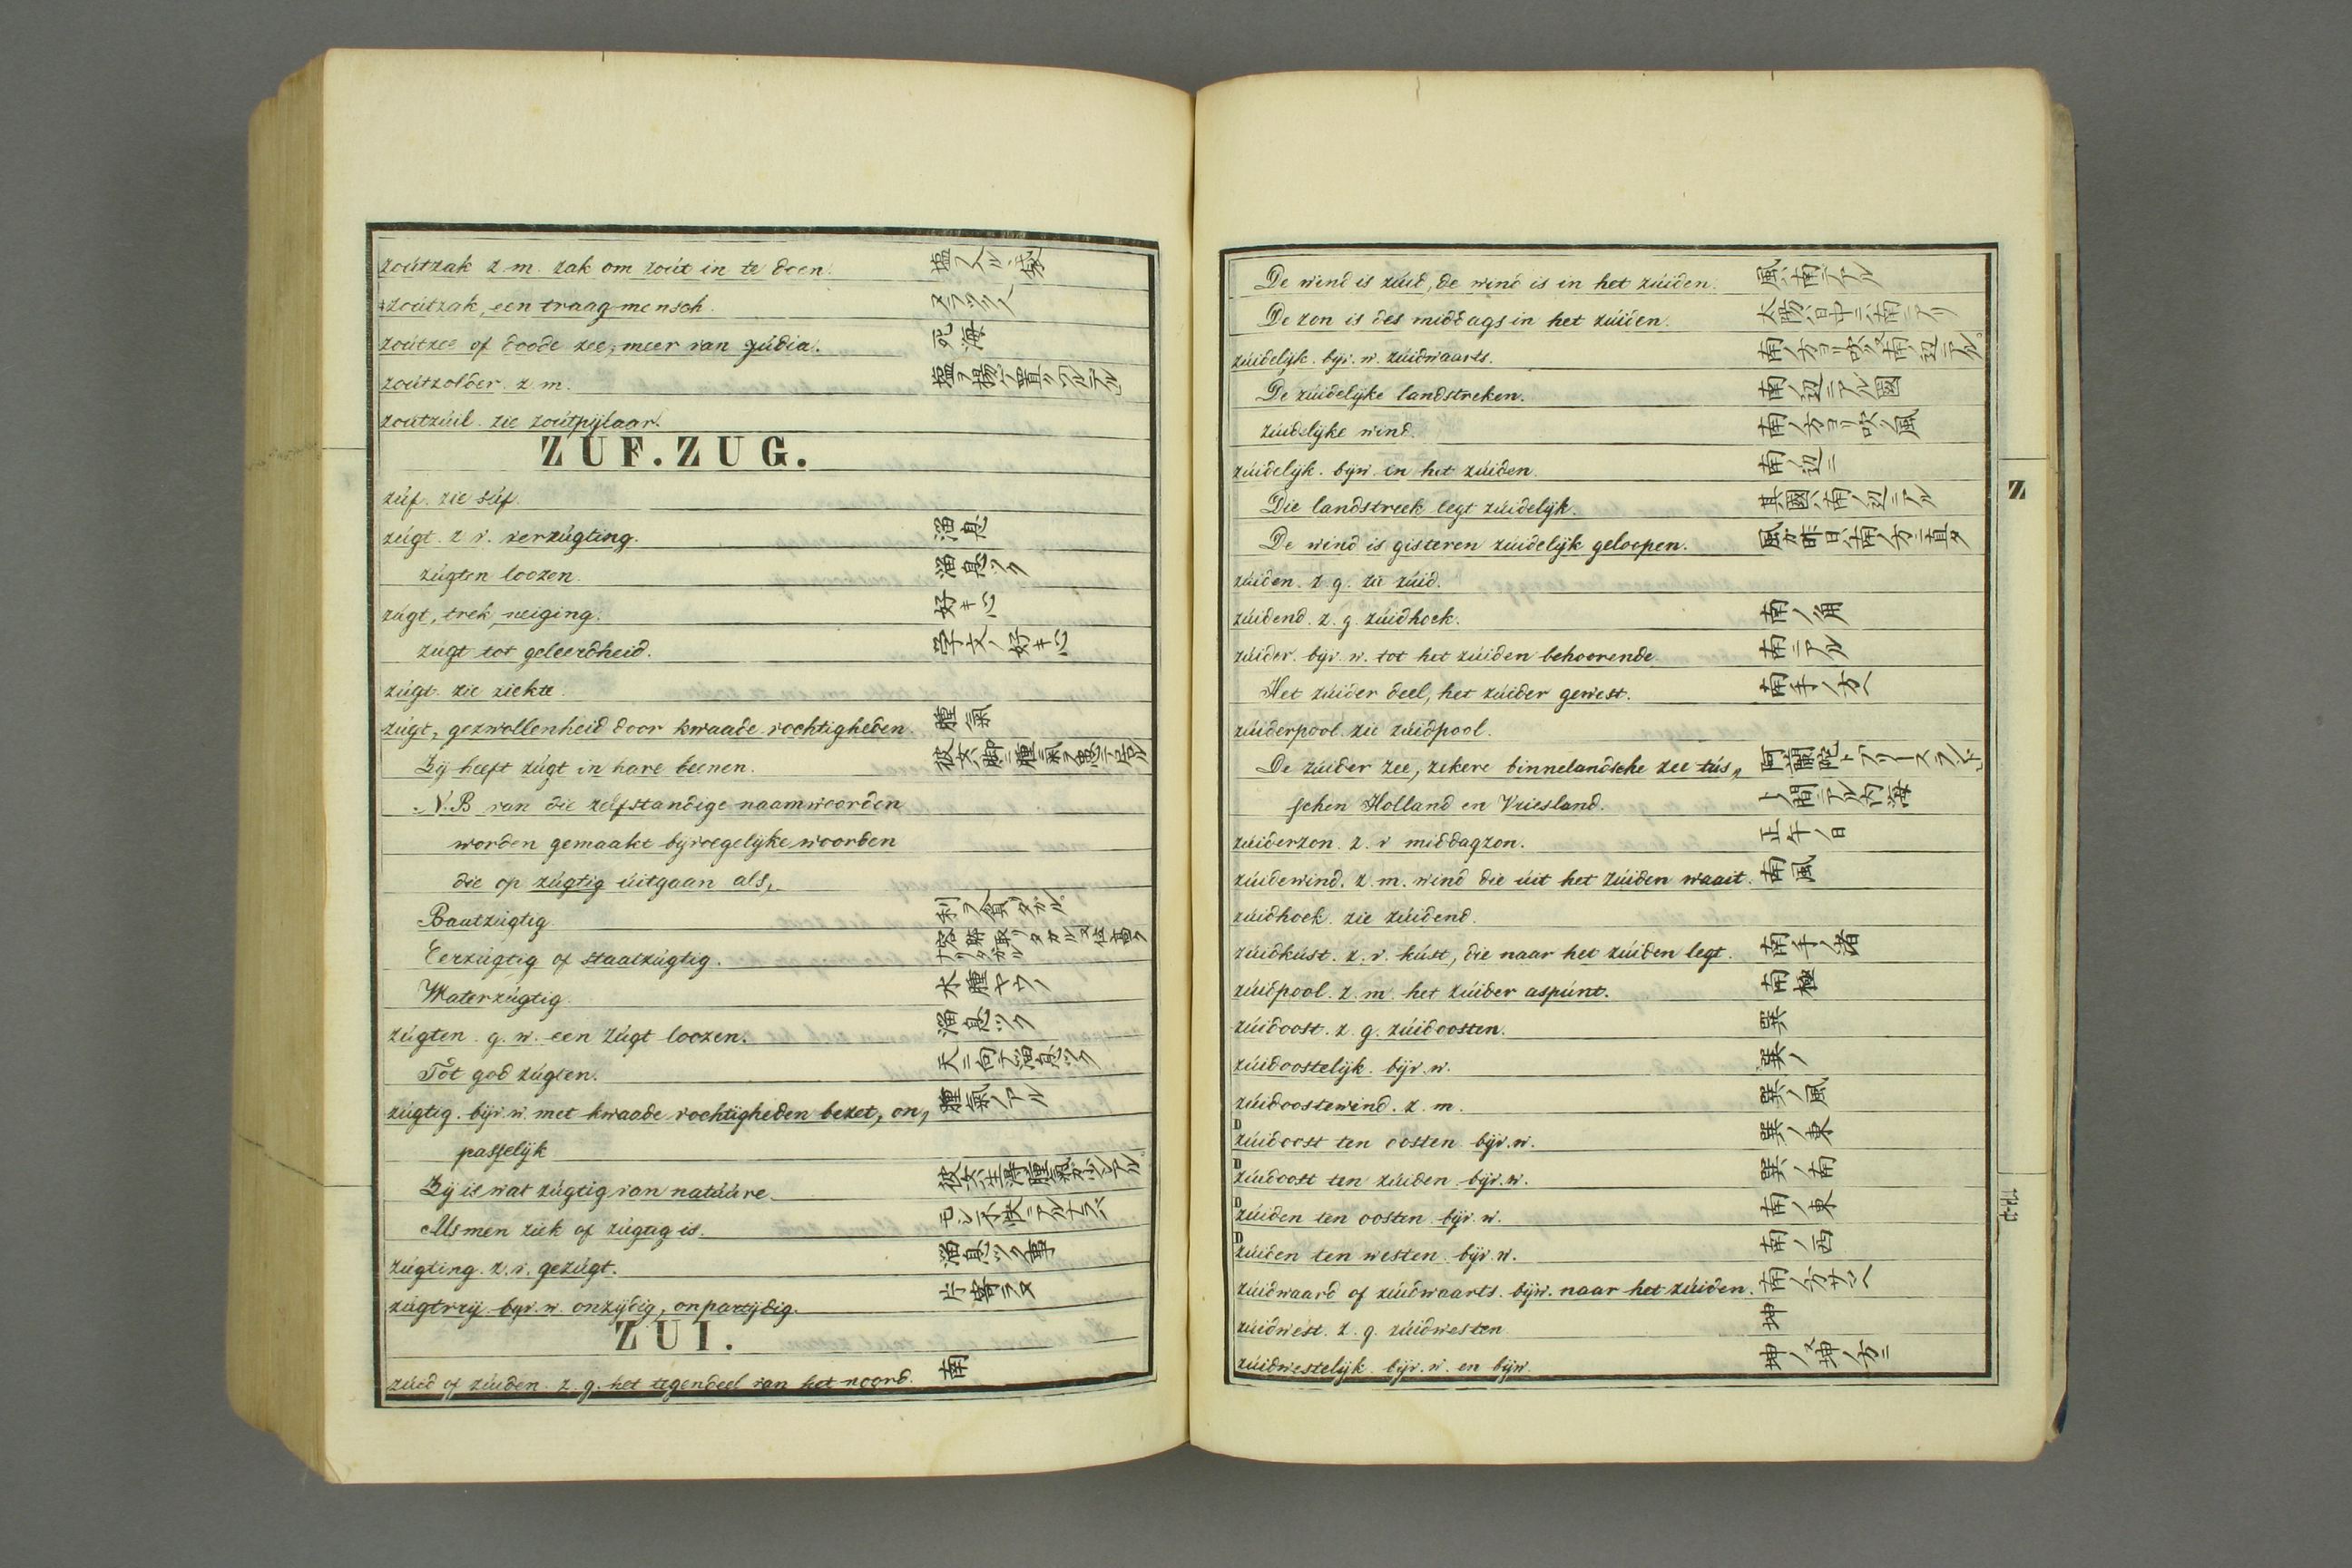 zoútzak z. m. zak om zoút in te doen. 塩ヲ入ル袋
zoútzak, een traag mensch.
zoútzee of doode zee, meer van júdia. 死海
zoútzolder. z. m.
zoútzúil. zie zoútpijlaar.
ZUF. ZUG.
zúf. zie súf.
zúgt. z. v. verzúgting. 溜息
zúgten loozen. 溜息ツク
zúgt, trek, neiging. 好キ心
zúgt tot geleerdheid. 学文ノ好キ心
zúgt. zie ziekte.
zúgt, gezwollenheid door kwaade vochtigheden. 腫氣
Zij heeft zúgt in hare beenen.
N. B van die zelfstandige naamwoorden
worden gemaakt bijvoegelijke woorden
die op zúgtig úitgaan als,
Baatzúgtig
Eerzúgtig of staatzúgtig.
Waterzúgtig. 水腫ヤウノ
zúgten. g. w. een zúgt loozen. 溜息ツク
Tot god zúgten. 天ニ向テ溜息ツク
zúgtig. bijv. w. met kwaade vochtigheden bezet, on,, 腫氣ノアル
passelijk
Zij is wat zúgtig van natúúre.
Als men ziek of zúgtig is.
zúgting. z. v. gezúgt. 溜息ツク事
zúgtvrij. bijv. w. onzijdig, onpartijdig. 片寄ラヌ
ZUI.
zúid of zúiden. z. g. het tegendeel van het noord. 南
De wind is zúid, de wind is in het zúiden. 風ハ南ニアル
De zon is des middags in het zúiden. 太陽ハ日中ニハ南ニアリ
zúidelijk. bijv. w. zúidwaarts. 南ノ方ヨリ吹ク又南ノ辺ニアル
De zúidelijke landstreken. 南ノ辺ニアル國
zúidelijke wind. 南ノ方ヨリ吹ク風
zúidelijk. bijw. in het zúiden. 南ノ辺ニ
Die landstreek legt zúidelijk. 其國ハ南ノ辺ニアル
De wind is gisteren zúidelijk geloopen. 風ガ昨日南ノ方ニ直タ
zúiden. z. g. zie zúid.
zúidend. z. g. zúidhoek. 南ノ角
zúider. bijv. w. tot het zúiden behoorende. 南ニアル
Het zúider deel, het zúider gewest. 南手ノ方
zúiderpool. zie zúidpool.
De zúider zee, zekere binnelandsche zee tús,, 阿蘭陀トフリースランド
schen Holland en Vriesland. ト間ニアル内海
zúiderzon. z. v. middagzon. 正午ノ日
zúidewind. z. m. wind die úit het zúiden waait. 南風
zúidhoek. zie zúidend.
zúidkúst. z. v. kúst, die naar het zúiden legt. 南手ノ渚
zúidpool. z. m. het zúider aspúnt. 南極
zúidoost. z. g. zúidoosten. 巽
zúidoostelijk. bijv. w. 巽ノ
zúidoostewind. z. m. 巽ノ風
D zúidoost ten oosten. bijv. w. 巽ノ東
D zúidoost ten zúiden. bijv. w. 巽ノ南
D zúiden ten oosten. bijv. w. 南ノ東
D zúiden ten westen. bijv. w. 南ノ西
zúidwaard of zúidwaarts. bijw. naar het zúiden. 南ノ方サシ
zúidwest. z. g. zúidwesten 坤
zúidwestelijk. bijv. w. en bijw. 坤ノ 又坤ノ方ニ
Z